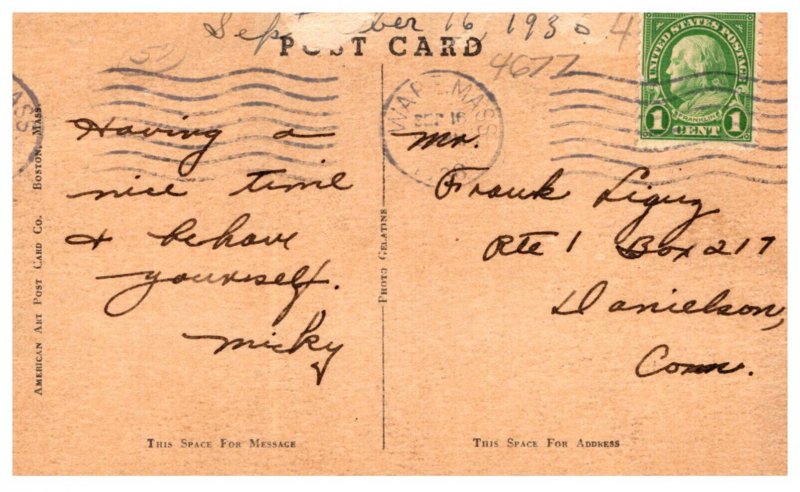 16, 193
4677
POST CARD
UNITED STATES POSTAGE
FRANKLIN
1 CENT 1
WARE MASS
SEP 16
Having a
nice time
& behave
yourself.
Micky
Mr.
Frank
Rte 1 Box 217
Danielson,
Conn.
AMERICAN ART POST CARD CO. BOSTON, MASS.
PHOTO GELATINE
THIS SPACE FOR MESSAGE
THIS SPACE FOR ADDRESS